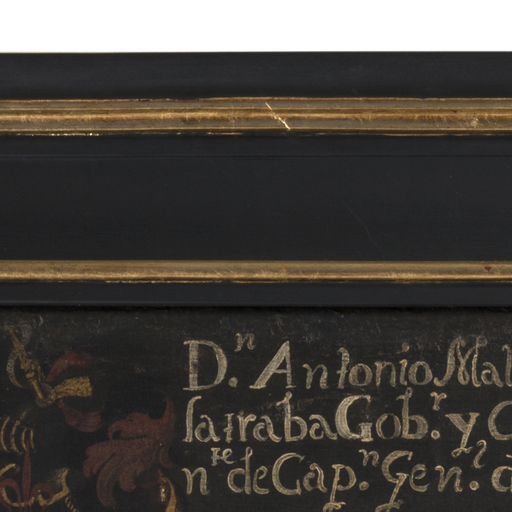 D.ⁿ Antonio Mal
latraba Gob.ʳ y C
nʳᵉ de Cap.ⁿ Gen.ˡ d